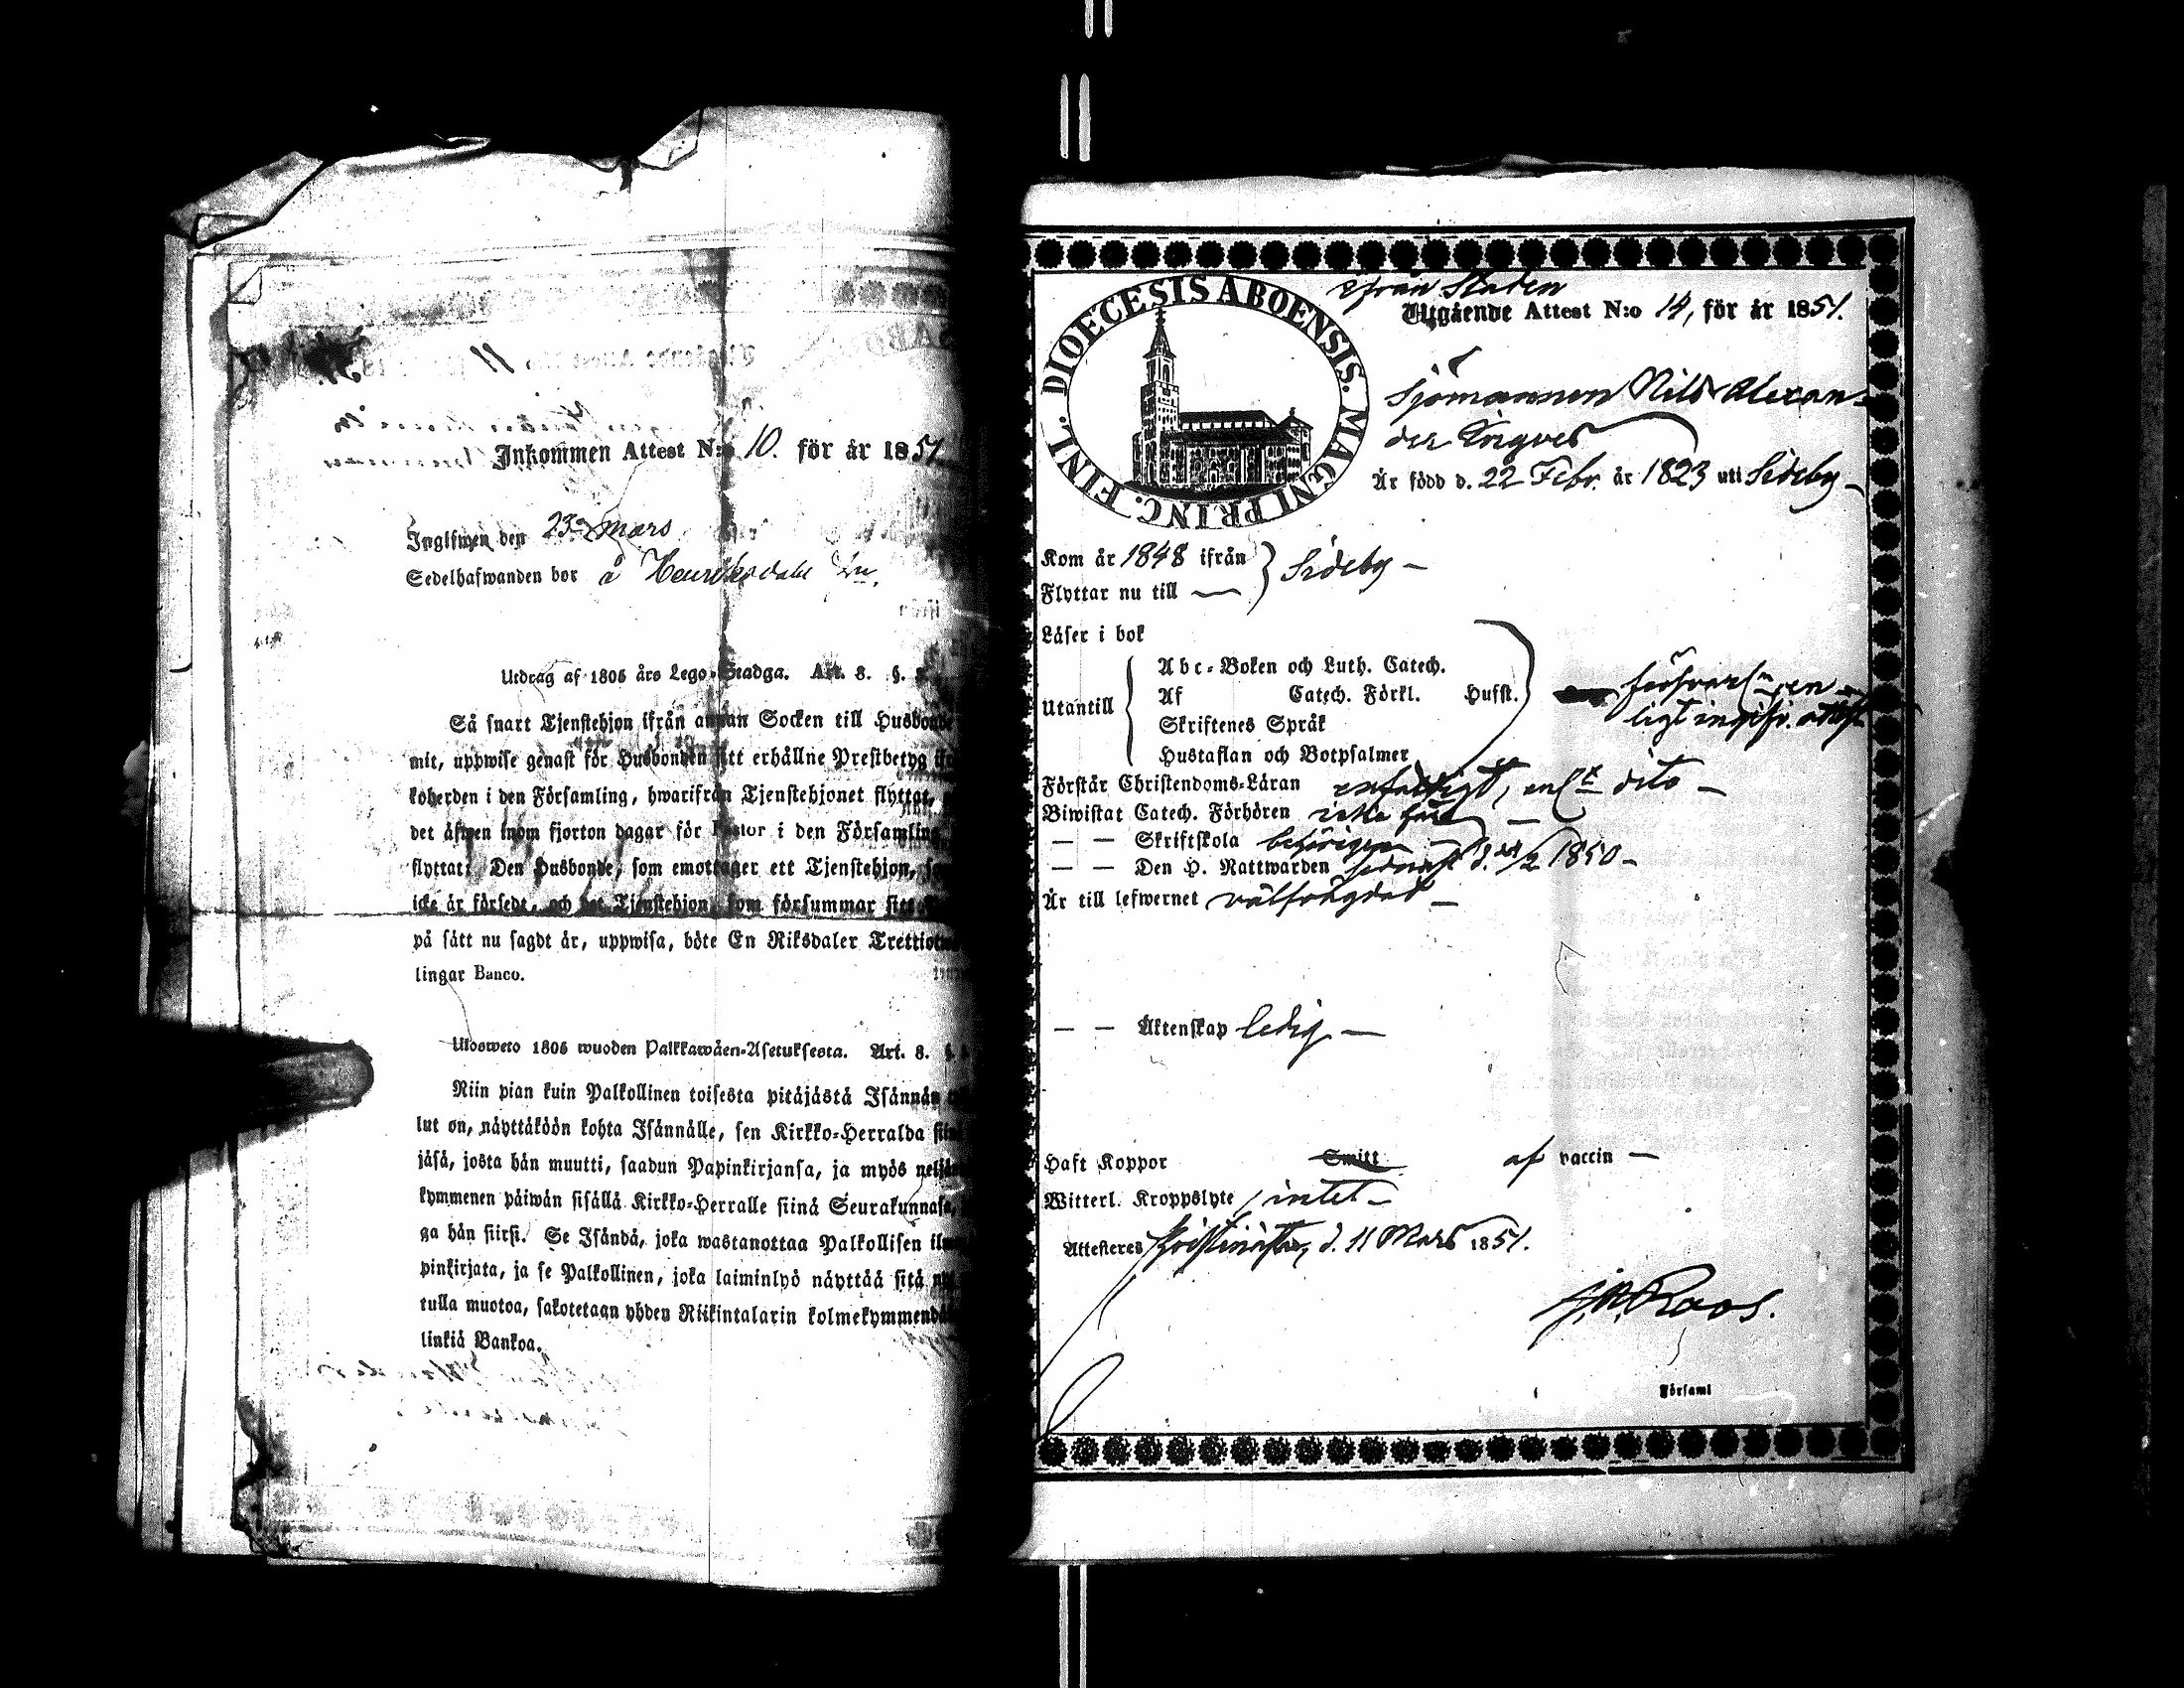 Inkommen Attest N:o 10. för år 1851
Inglswen den 23 mars
Sedelhafwanden bor å Henriksdahl
Utdrag af 1805 års Lego-Stadga. Art. 8. §.
Så snart Tjenstehjon ifrån annan Socken till Husbonde
mit, uppwise genast för Husbonden sitt erhållne Prestbetyg
koherden i den Församling, hwarifrån Tjenstehjonet flyttat,
det äfwen inom fjorton dagar för Pastor i den Församling
flyttat; Den Husbonde, som emottager ett Tjenstehjon,
icke är försedt, och det Tjenstehjon, som försummar sitt
på sätt nu sagdt är, uppwisa, böte En Riksdaler
lingar Banco.
Ulosweto 1805 wuoden Palkkawäen-Asetuksesta. Art. 8.
Niin pian kuin Palkollinen toisesta pitäjästä Isännän
lut on, näyttäköön kohta Isännälle, sen Kirkko-Herralda
jäsä, josta hän muutti, saadun Papinkirjansa, ja myös
kymmenen päiwän sisällä Kirkko-Herralle siinä Seurakunnasa,
ga hän siirsi. Se Isändä, joka wastanottaa Palkollisen
pinkirjata, ja se Palkollinen, joka laiminlyö näyttää sitä
tulla muotoa, sakotetaan yhden Riikintalarin
linkiä Bankoa.
DIOECESIS ABOENSIS. MAGNI PRINC. FINL.
ifrån Staden
Utgående Attest N:o 14, för år 1851.
Sjömannen Nils Alexan-
der Ingves
Är född d. 22 Febr. år 1823 uti Sideby
Kom år 1848 ifrån
Flyttar nu till } Sideby
Läser i bok
Abc-Boken och Luth. Catech.
Utantill Af Catech. Förkl. Husst.
Skriftenes Språk
Hustaflan och Botpsalmer
försvarl. en-
ligt ingifv. attest
Förstår Christendoms-Läran enfaldigt, enl. dito
Biwistat Catech. Förhören icke här
— — Skriftskola behörigen
— — Den H. Nattwarden sednast d. /2 1850
Är till lefwernet välfrägdad
— — Äktenskap ledig
Haft Koppor Smitt af vaccin
Witterl. Kroppslyte intet
Attesteres d. 11 Mars 1851.
Roos.
Församl